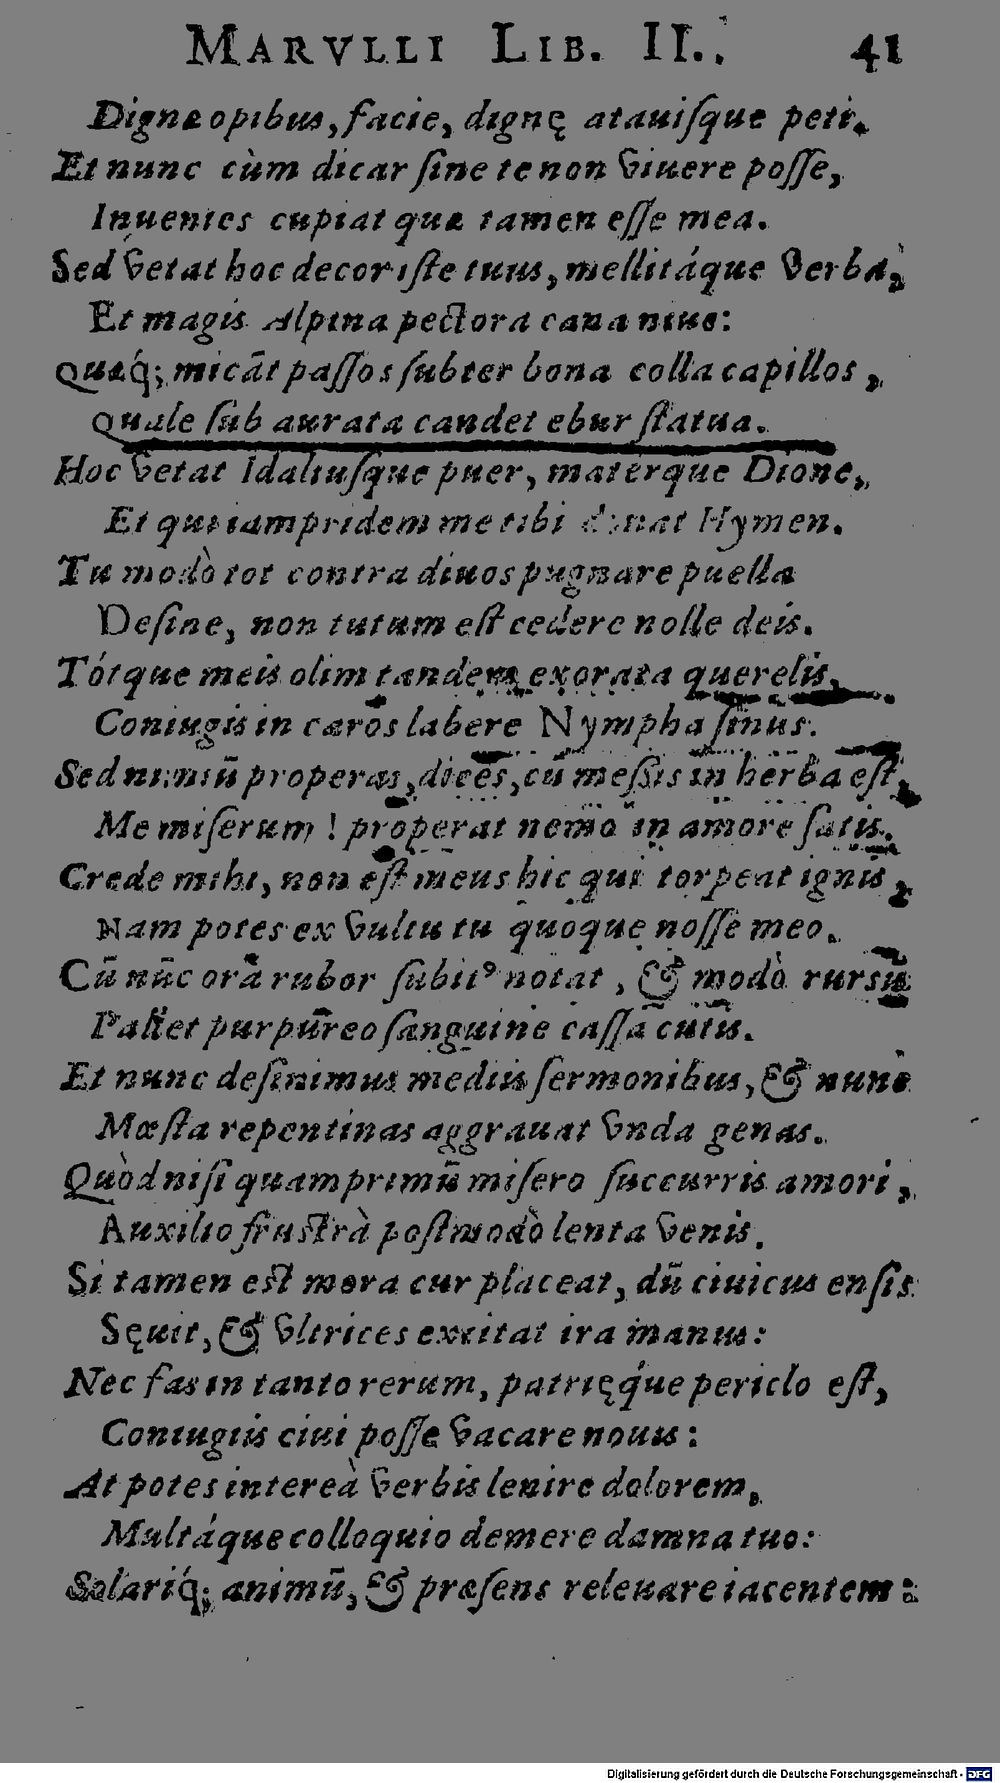 MARVLLI LIB. II. 41
Dignaopibus, facie, dignę atauisque peti.
Et nunc cùm dicar sine te non viuere posse,
Inuenies cupiat quæ tamen esse mea.
Sed vetat hoc decor iste tuus, mellitáque verba,
Et magis Alpina pectora cana niue:
Quæq́; micāt passos subter bona colla capillos,
Quale sub aurata candet ebur statua.
Hoc vetat Idaliusque puer, materque Dione,
Et qui iampridem me tibi donat Hymen.
Tu modò tot contra diuos pugnare puella
Desine, non tutum est cedere nolle deis.
Tótque meis olim tandem exorata querelis,
Coniugis in caros labere Nympha sinus.
Sed nimiū properas, dices, cū messis in herba est,
Me miserum! properat nemo in amore satis.
Crede mihi, non est meus hic qui torpeat ignis,
Nam potes ex vultu tu quoque nosse meo.
Cū nūc ora rubor subitꝰ notat, & modò rursū
Pallet purpureo sanguine cassa cutis.
Et nunc desinimus mediis sermonibus, & nunc
Mœsta repentinas aggrauat vnda genas.
Quòd nisi quamprimū misero succurris amori,
Auxilio frustrà postmodò lenta venis.
Si tamen est mora cur placeat, dū ciuicus ensis
Sęuit, & vltrices excitat ira manus:
Nec fas in tanto rerum, patrięq́ue periclo est,
Coniugiis ciui posse vacare nouis:
At potes intereà verbis lenire dolorem,
Multáque colloquio demere damna tuo:
Solariq́; animū, & præsens releuare iacentem:
Digitalisierung gefördert durch die Deutsche Forschungsgemeinschaft - DFG